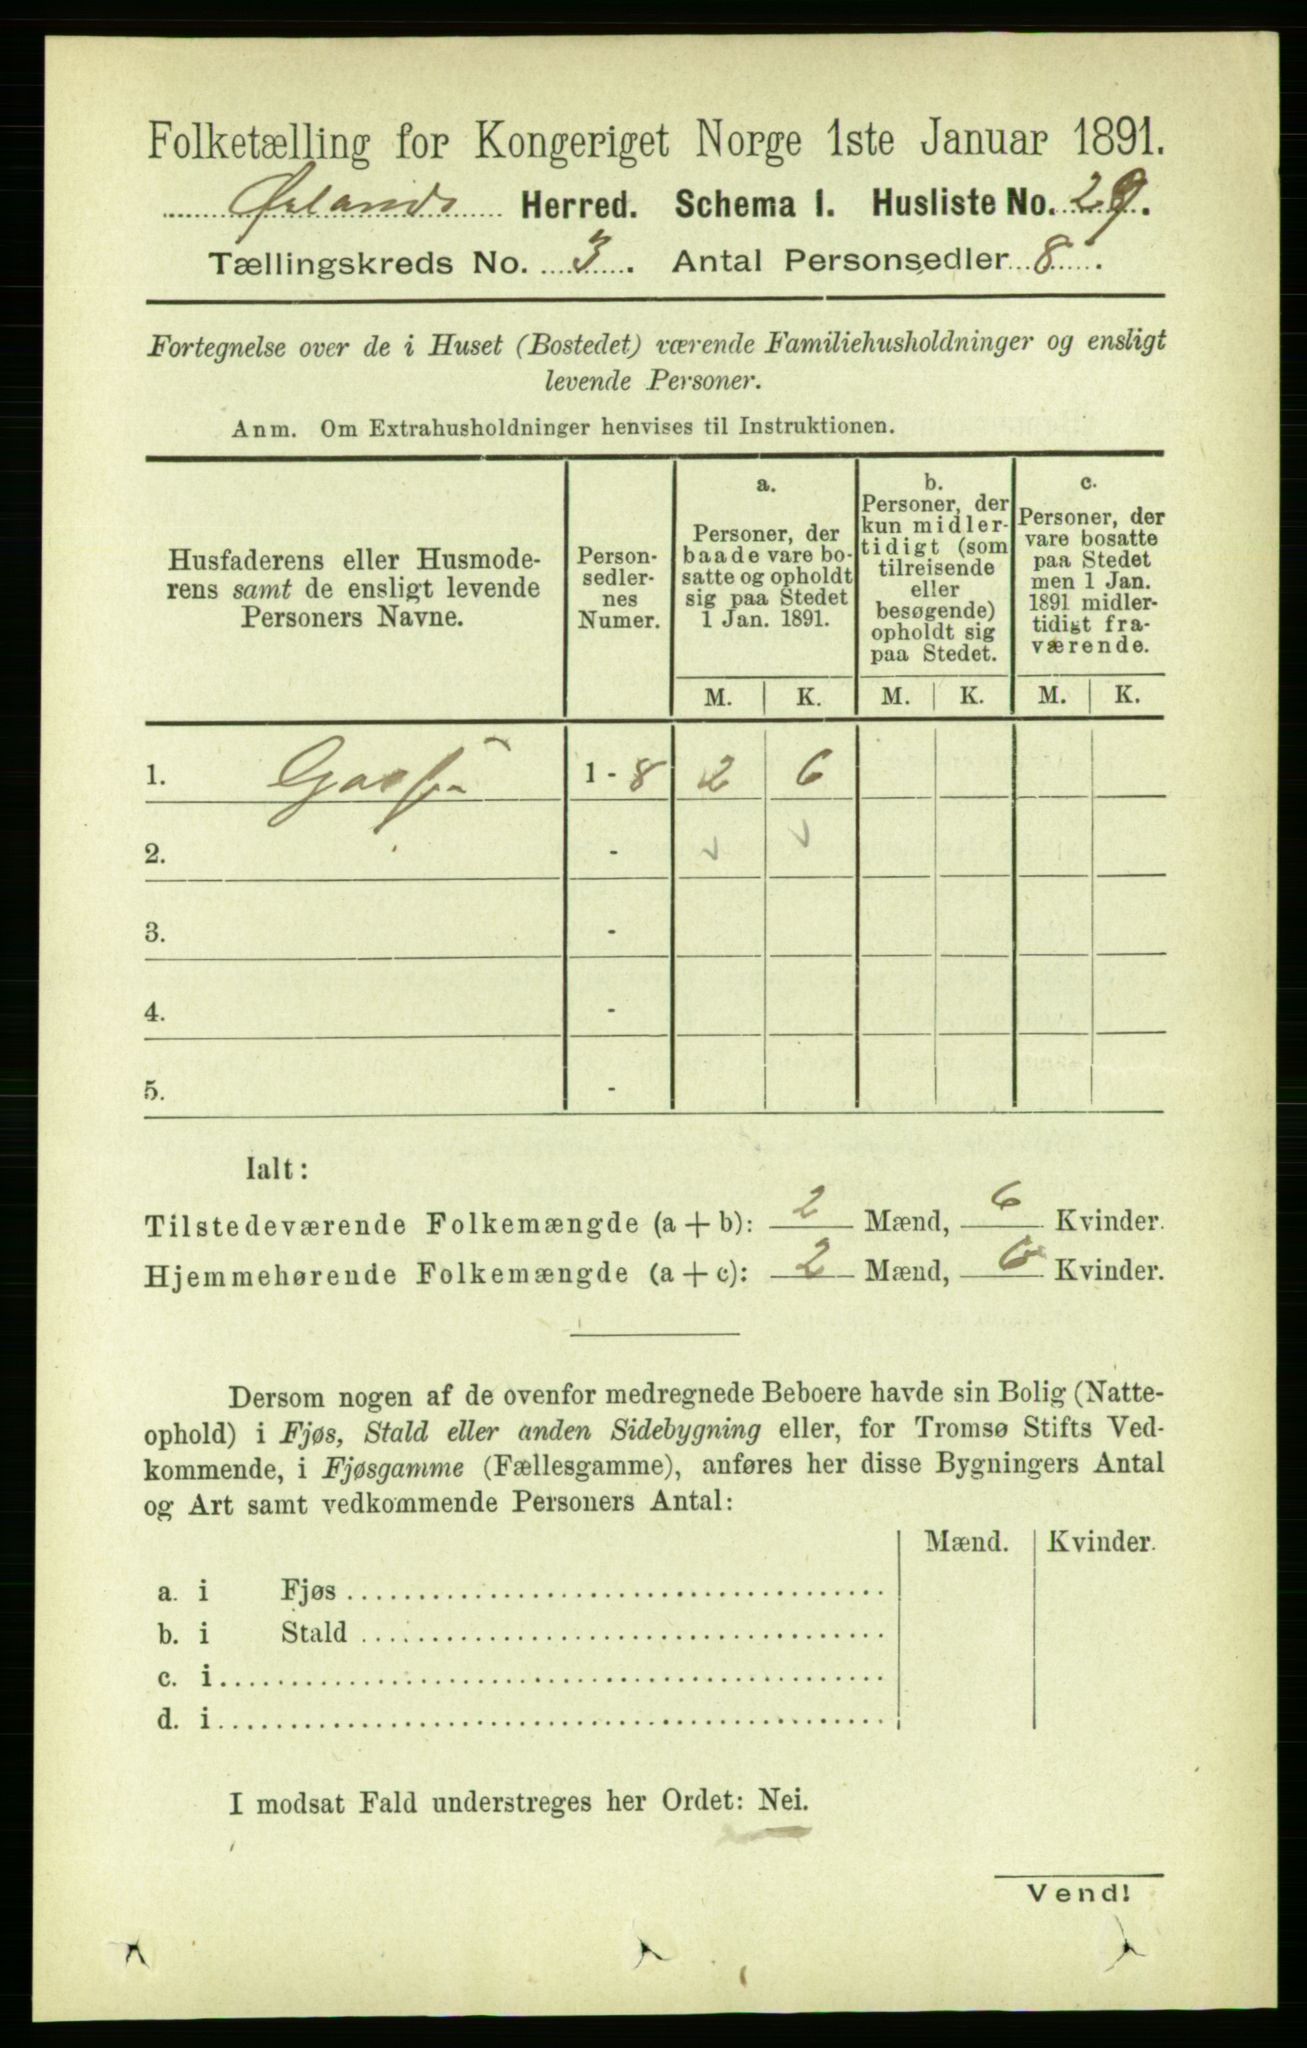 Folketælling for Kongeriget Norge 1ste Januar 1891.
Ørlands Herred. Schema I. Husliste No. 29.
Tællingskreds No. 3. Antal Personsedler 8.
Fortegnelse over de i Huset (Bostedet) værende Familiehusholdninger og ensligt
levende Personer.
Anm. Om Extrahusholdninger henvises til Instruktionen.
Husfaderens eller Husmode-
rens samt de ensligt levende
Personers Navne.
Person-
sedler-
nes
Numer.
a.
Personer, der
baade vare bo-
satte og opholdt
sig paa Stedet
1 Jan. 1891.
b.
Personer, der
kun midler-
tidigt (som
tilreisende
eller
besøgende)
opholdt sig
paa Stedet.
c.
Personer, der
vare bosatte
paa Stedet
men 1 Jan.
1891 midler-
tidigt fra-
værende.
M. K. M. K. M. K.
1. 1 - 8 2 6
2. -
3. -
4. -
5. -
Ialt:
Tilstedeværende Folkemængde (a + b): 2 Mænd, 6 Kvinder.
Hjemmehørende Folkemængde (a + c): 2 Mænd, 6 Kvinder.
Dersom nogen af de ovenfor medregnede Beboere havde sin Bolig (Natte-
ophold) i Fjøs, Stald eller anden Sidebygning eller, for Tromsø Stifts Ved-
kommende, i Fjøsgamme (Fællesgamme), anføres her disse Bygningers Antal
og Art samt vedkommende Personers Antal:
Mænd. Kvinder.
a. i Fjøs
b. i Stald
c. i
d. i
I modsat Fald understreges her Ordet: Nei.
Vend!